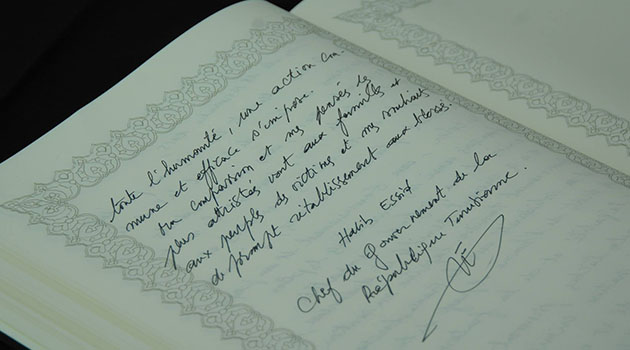 toute l'humanité, une action com-
mune et efficace s'impose.
Ma compassion et mes pensées les
plus attristés vont aux familles et
aux peuples des victimes et mes souhait
de prompt rétablissement aux blessés.
Habib Essid
Chef du gouvernement de la
République Tunisienne.